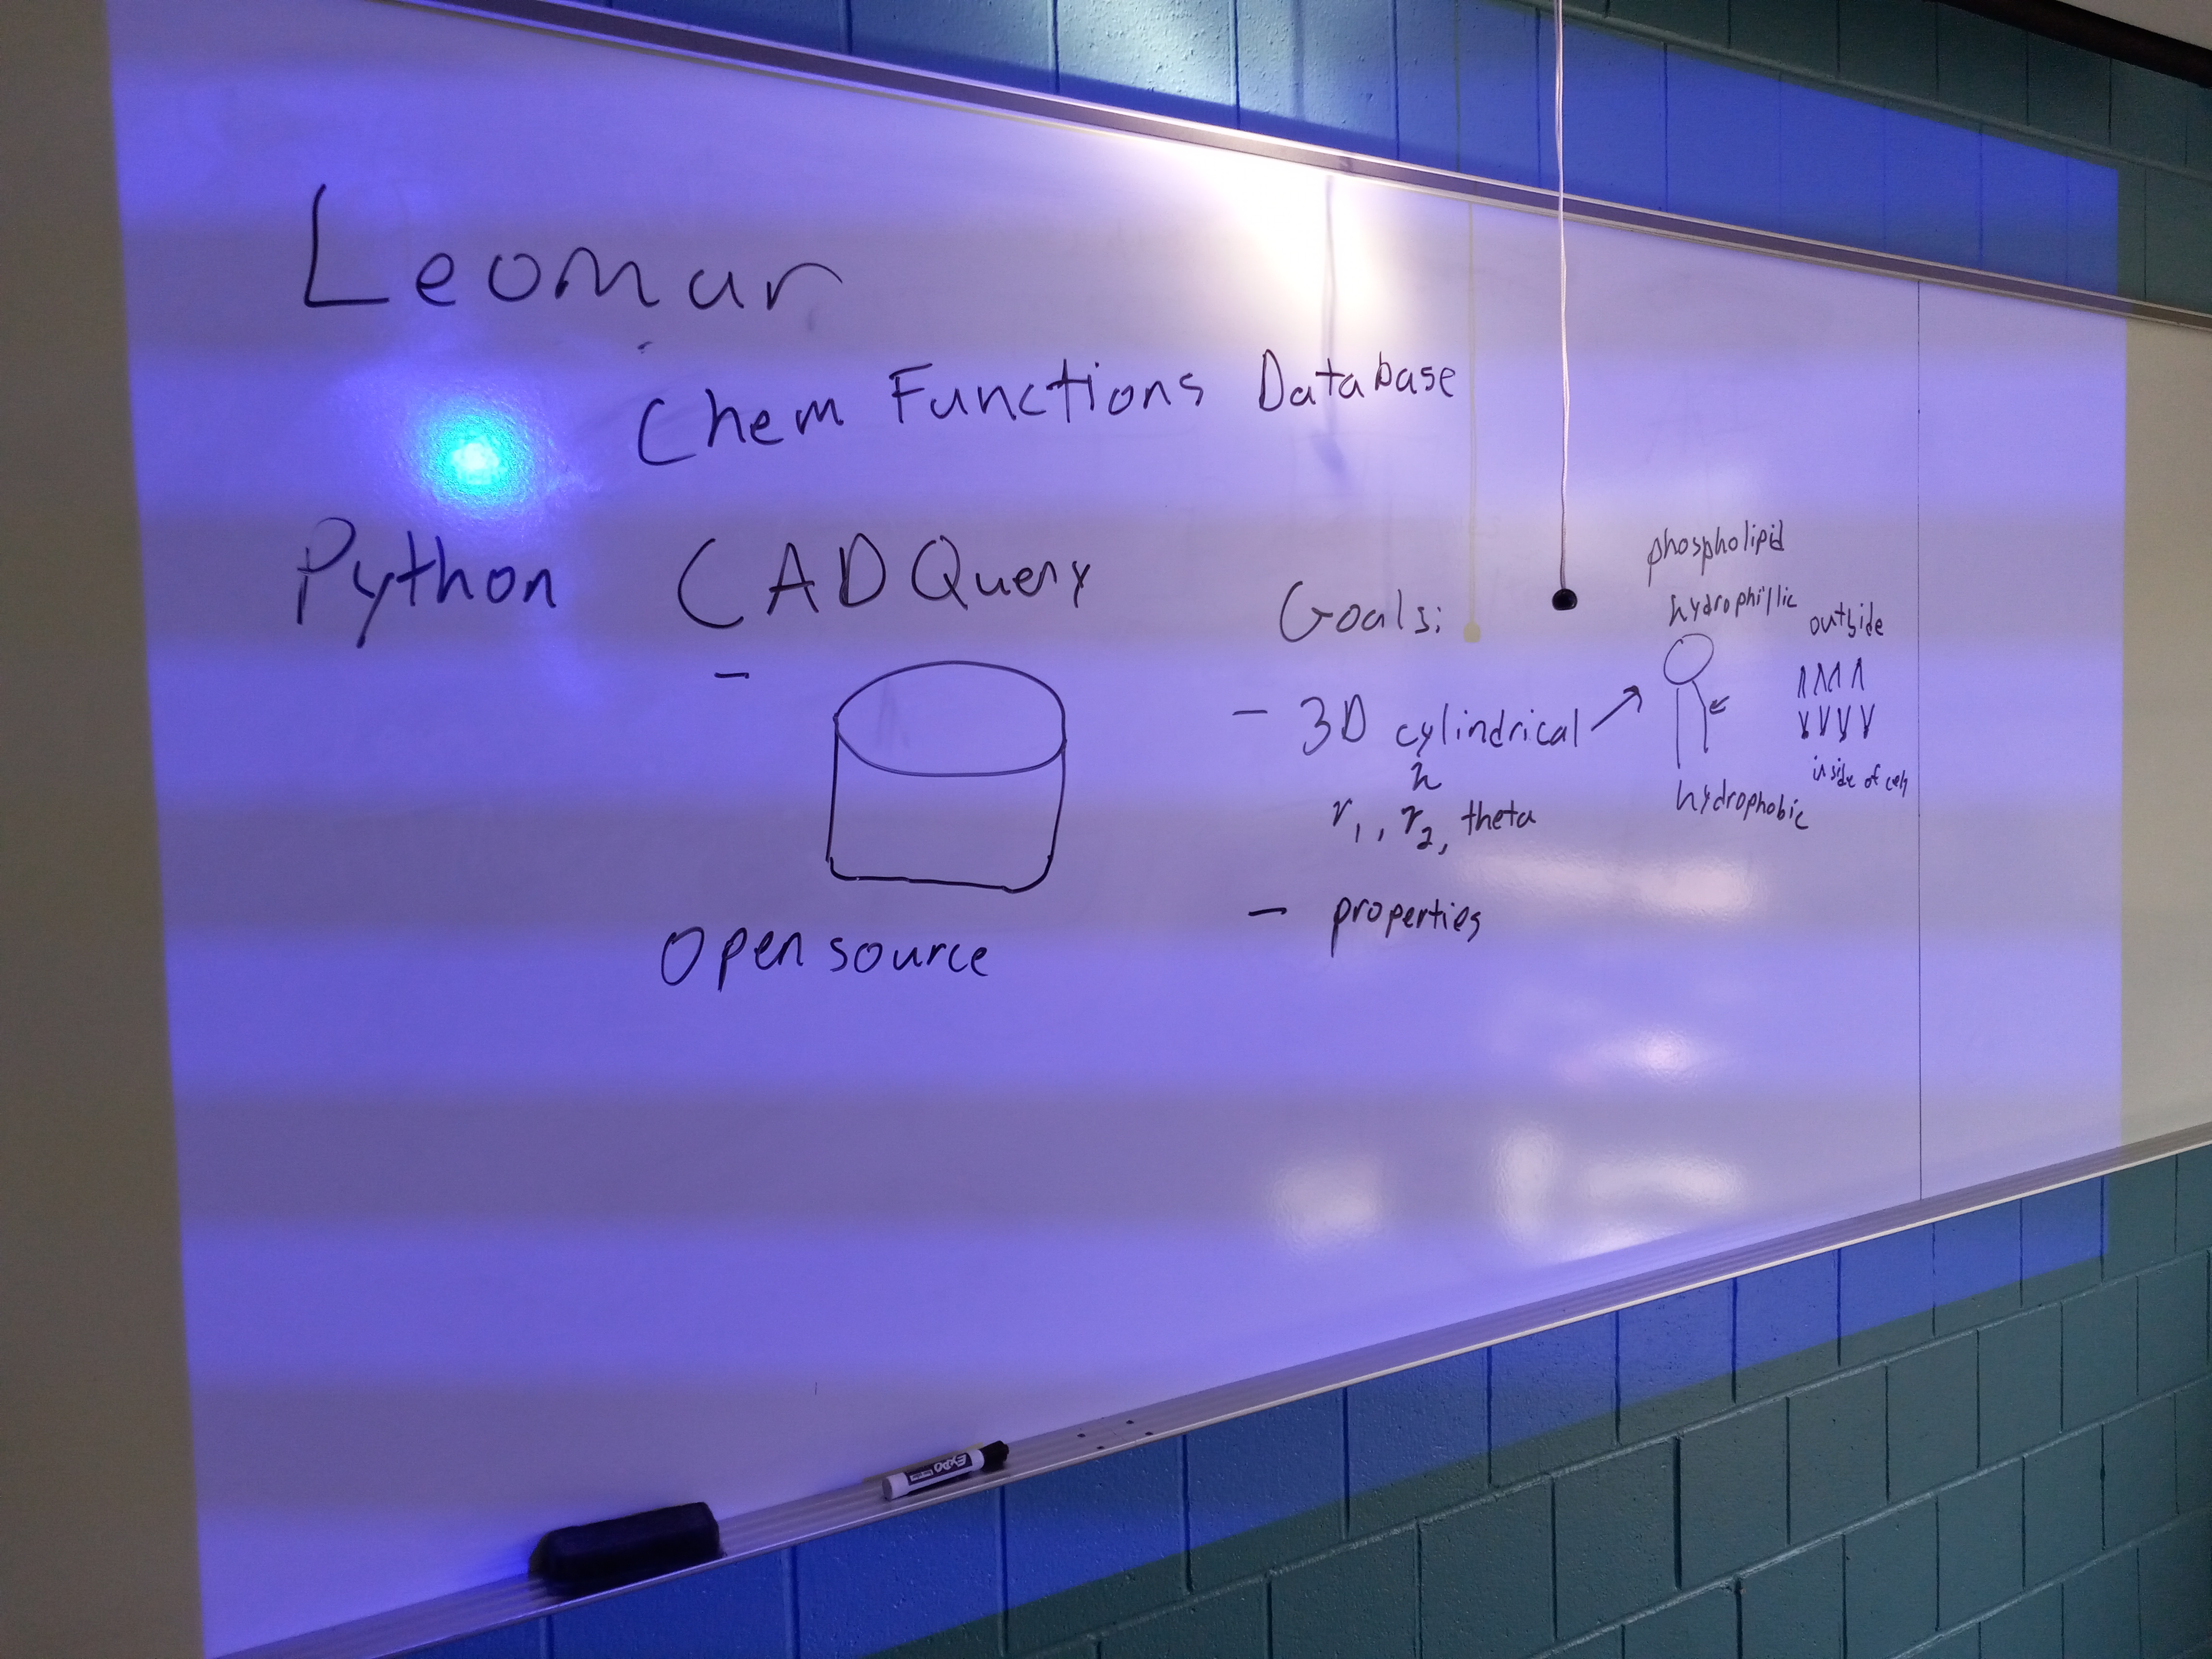 Leomar
Chem Functions Database
Python CAD Query
-
Open source
Goals:
- 3D cylindrical
h
r1, r2, theta
- properties
phospholipid
hydrophillic
outside
inside of cell
hydrophobic
EXPO